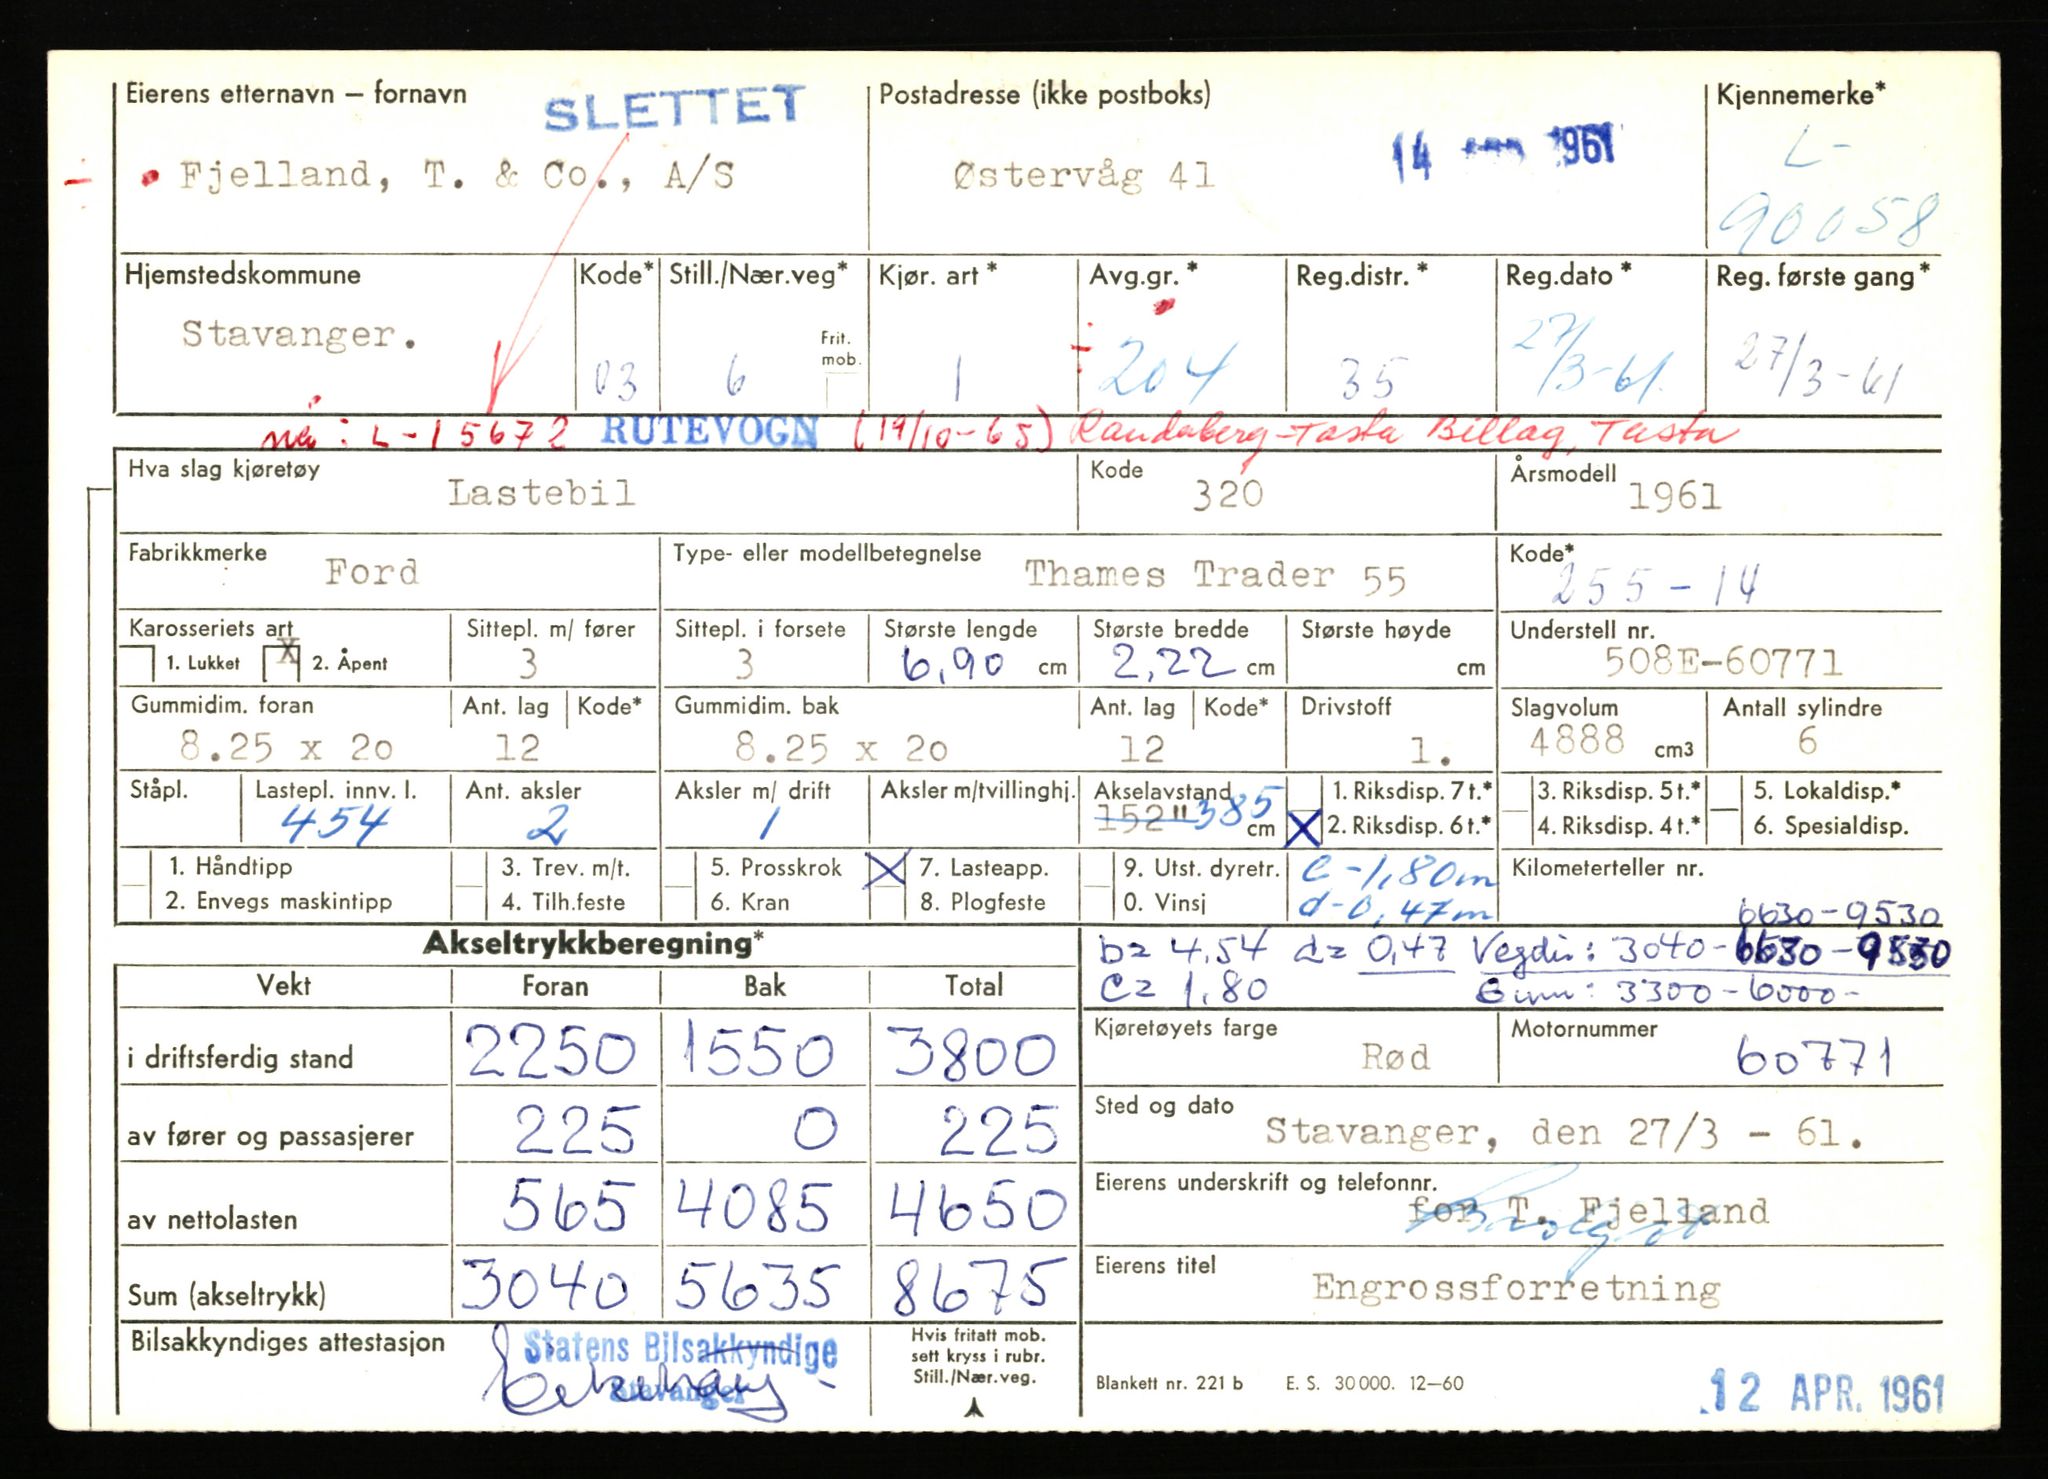 Eierens etternavn – fornavn SLETTET Postadresse (ikke postboks) Kjennemerke*
Fjelland, T. & Co., A/S Østervåg 41 14 1961 L-
90058
Hjemstedskommune Kode* Still./Nær.veg* Kjør. art * Avg.gr. * Reg.distr. * Reg.dato * Reg. første gang *
Stavanger. 03 6 Frit. mob. 1 204 35 27/3-61. 27/3-61
nå: L-15672 RUTEVOGN (19/10-65) Randaberg-Tasta Billag, Tasta
Hva slag kjøretøy Lastebil Kode 320 Årsmodell 1961
Fabrikkmerke Ford Type- eller modellbetegnelse Thames Trader 55 Kode* 255-14
Karosseriets art Sittepl. m/ fører Sittepl. i forsete Største lengde Største bredde Største høyde Understell nr.
1. Lukket X 2. Åpent 3 3 6,90 cm 2,22 cm cm 508E-60771
Gummidim. foran Ant. lag Kode* Gummidim. bak Ant. lag Kode* Drivstoff Slagvolum Antall sylindre
8.25 x 20 12 8.25 x 20 12 1. 4888 cm3 6
Ståpl. Lastepl. innv. l. Ant. aksler Aksler m/ drift Aksler m/tvillinghj. Akselavstand 1. Riksdisp. 7 t.* 3. Riksdisp. 5 t.* 5. Lokaldisp.*
454 2 1 152" 385 cm X 2. Riksdisp. 6 t.* 4. Riksdisp. 4 t.* 6. Spesialdisp.
1. Håndtipp 3. Trev. m/t. 5. Prosskrok X 7. Lasteapp. 9. Utst. dyretr. C-1,80m Kilometerteller nr.
2. Envegs maskintipp 4. Tilh.feste 6. Kran 8. Plogfeste 0. Vinsj d-0,47m 6630-9530
Akseltrykkberegning* b= 4,54 d= 0,47 Vegdir: 3040-6630-9530
Vekt Foran Bak Total C= 1,80 3300-6000-
i driftsferdig stand 2250 1550 3800 Kjøretøyets farge Rød Motornummer 60771
av fører og passasjerer 225 0 225 Sted og dato Stavanger, den 27/3 - 61.
av nettolasten 565 4085 4650 Eierens underskrift og telefonnr. for T. Fjelland
Sum (akseltrykk) 3040 5635 8675 Eierens titel Engrossforretning
Bilsakkyndiges attestasjon Statens Bilsakkyndige Hvis fritatt mob.
sett kryss i rubr.
Stavanger Still./Nær.veg. Blankett nr. 221 b E. S. 30 000. 12–60 12 APR. 1961